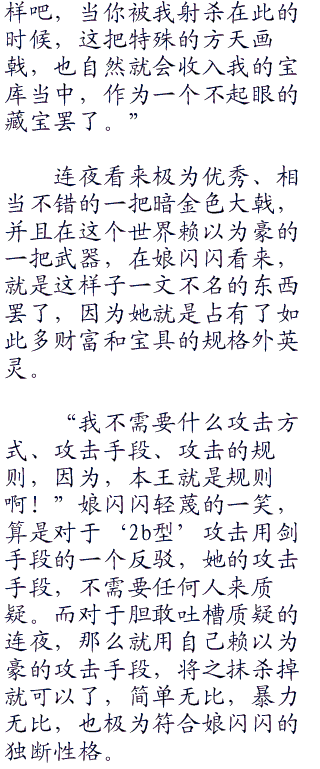 样吧，当你被我射杀在此的
时候，这把特殊的方天画
戟，也自然就会收入我的宝
库当中，作为一个不起眼的
藏宝罢了。”
连夜看来极为优秀、相
当不错的一把暗金色大戟，
并且在这个世界赖以为豪的
一把武器，在娘闪闪看来，
就是这样子一文不名的东西
罢了，因为她就是占有了如
此多财富和宝具的规格外英
灵。
“我不需要什么攻击方
式、攻击手段、攻击的规
则，因为，本王就是规则
啊！”娘闪闪轻蔑的一笑，
算是对于‘2b型’攻击用剑
手段的一个反驳，她的攻击
手段，不需要任何人来质
疑。而对于胆敢吐槽质疑的
连夜，那么就用自己赖以为
豪的攻击手段，将之抹杀掉
就可以了，简单无比，暴力
无比，也极为符合娘闪闪的
独断性格。